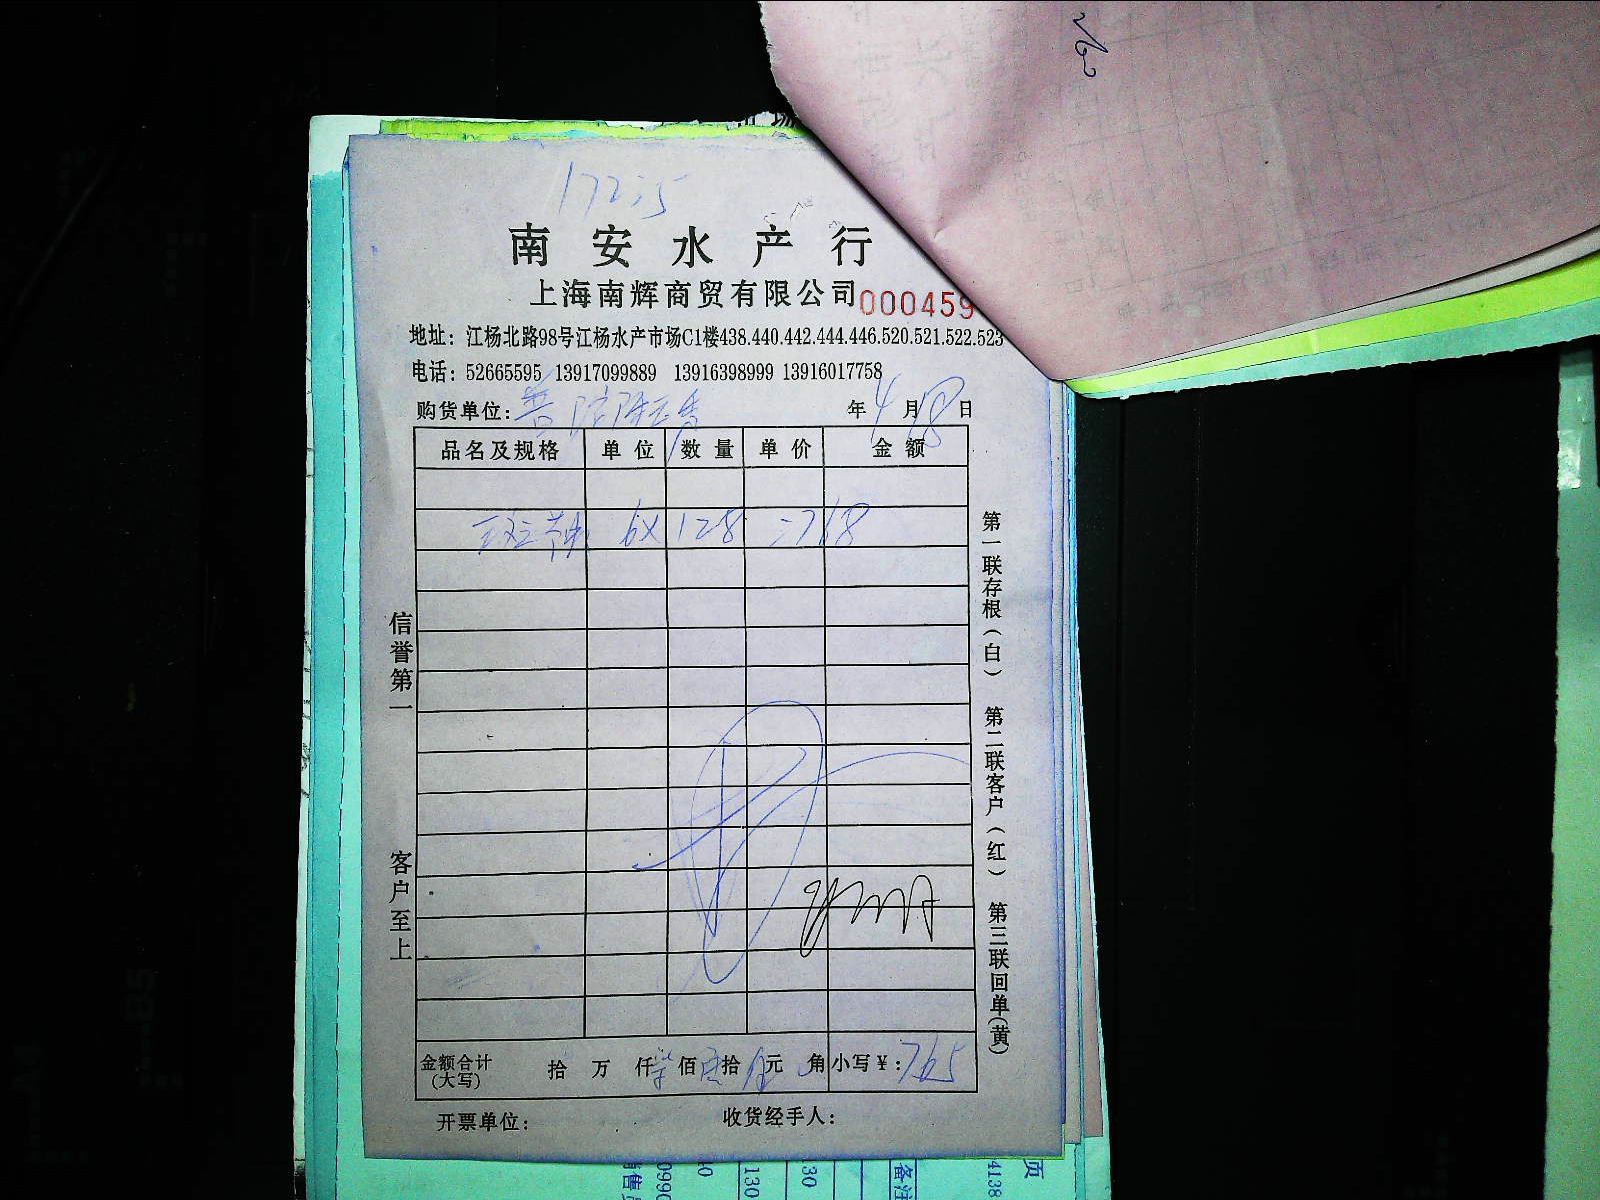 1725
南安水产行
上海南辉商贸有限公司 000459
地址：江杨北路98号江杨水产市场C1楼438.440.442.444.446.520.521.522.523
电话：52665595 13917099889 13916398999 13916017758
购货单位：普陀 年4月18日
品名及规格 单位 数量 单价 金额
6X 128 =768
信誉第一 客户至上
第一联存根（白） 第二联客户（红） 第三联回单（黄）
金额合计(大写) 拾 万 仟 柒 佰 陆 拾 伍 元 角 小写￥：765
开票单位： 收货经手人：
页
备注
4138
130
130